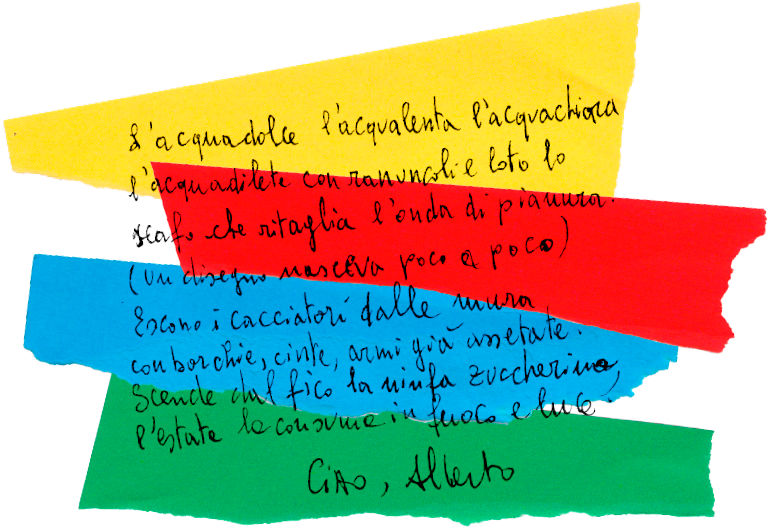 L'acquadolce l'acqualenta l'acquachiara
l'acquadilete con ranuncoli e loto lo
scafo che ritaglia l'onda di pianura.
(un disegno nasceva poco a poco)
Escono i cacciatori dalle mura
con borchie, cinte, armi già assetate.
Scende dal fico la ninfa zuccherina,
l'estate la consuma in fuoco e luce.
Ciao, Alberto